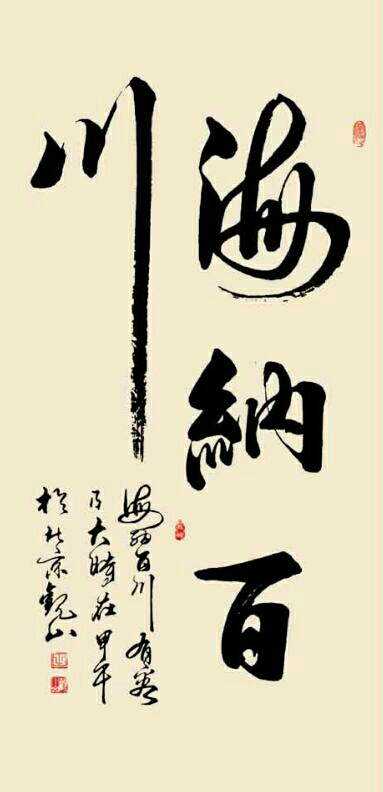 海納百
川
海納百川 有容
乃大時在甲午
於北京観山